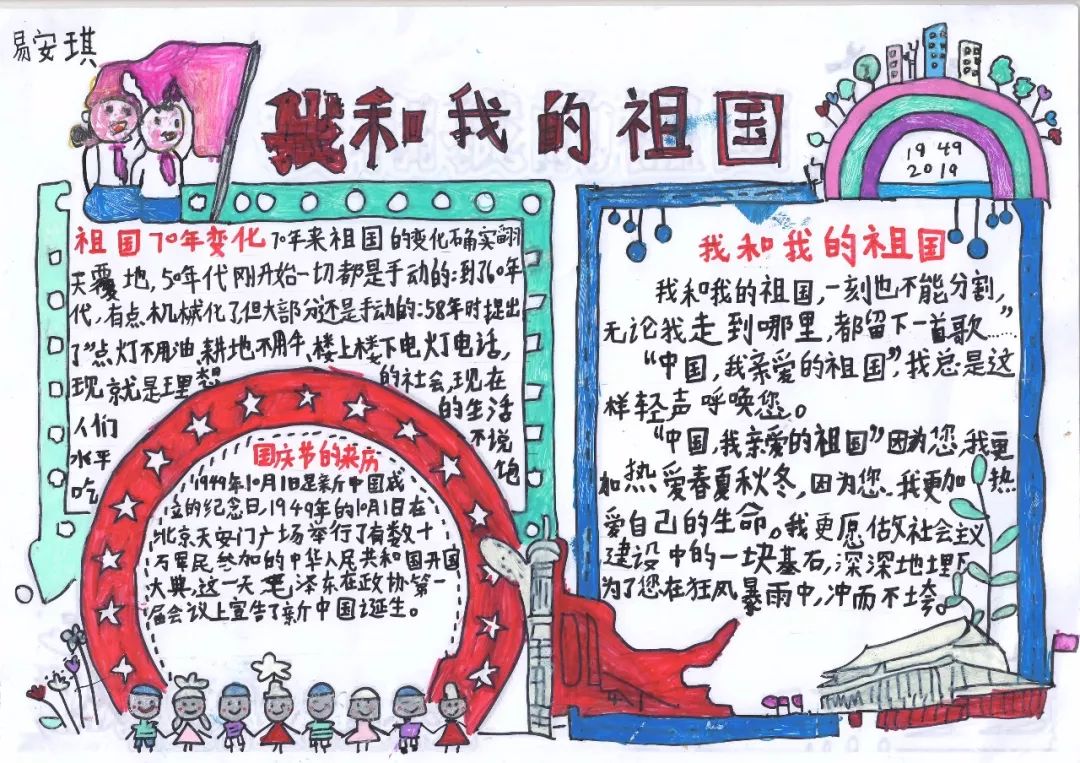 易安琪
我和我的祖国
1949
2019
祖国70年变化 70年来祖国的变化确实翻
天覆地,50年代刚开始一切都是手动的;到了60年
代,有点机械化了,但大部分还是手动的;58年时提出
了"点灯不用油,耕地不用牛,楼上楼下电灯电话,
现就是理想的社会,现在
人们的生活
水平不说
吃饱
国庆节的来历
1949年10月1日是新中国成
立的纪念日,1949年的10月1日在
北京天安门广场举行了有数十
万军民参加的中华人民共和国开国
大典,这一天毛泽东在政协第一
届会议上宣告了新中国诞生。
我和我的祖国
我和我的祖国,一刻也不能分割,
无论我走到哪里,都留下一首歌……"
"中国,我亲爱的祖国",我总是这
样轻声呼唤您。
"中国,我亲爱的祖国"因为您,我更
加热爱春夏秋冬,因为您..我更加热
爱自己的生命。我更愿做社会主义
建设中的一块基石,深深地埋下
为了您在狂风暴雨中,冲而不垮。